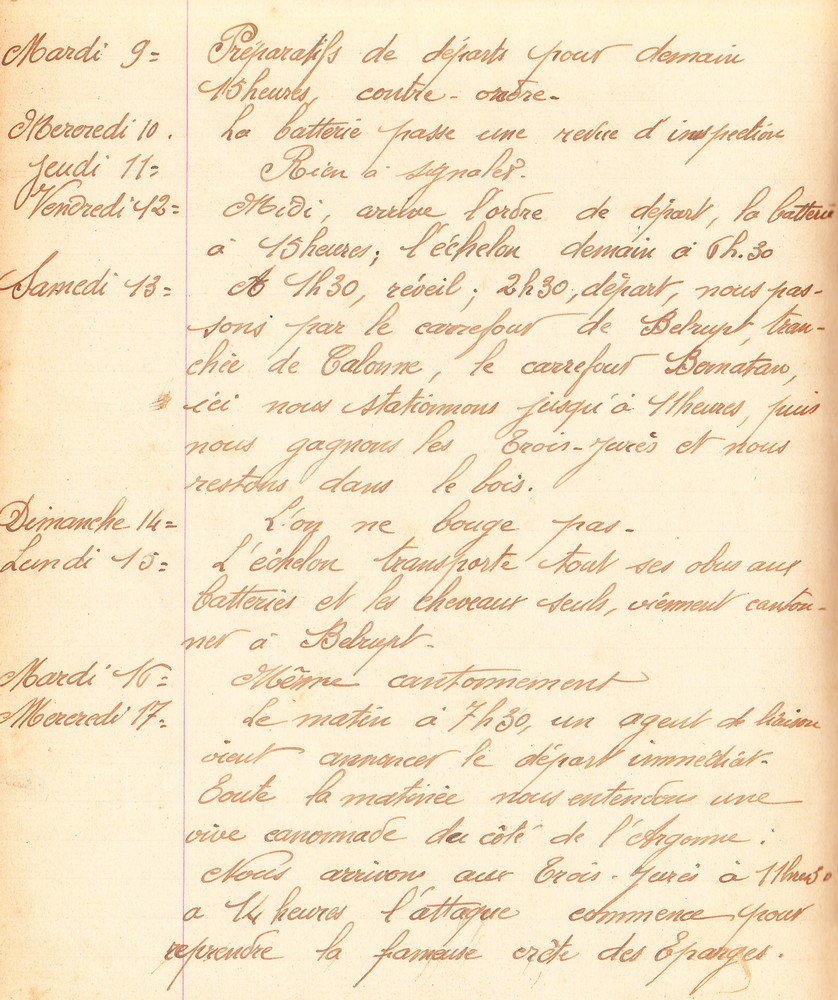 Mardi 9= Préparatifs de départs pour demain
15 heures, contre-ordre-
Mercredi 10. La batterie passe une revue d'inspection
Jeudi 11= Rien à signaler.
Vendredi 12= Midi, arrive l'ordre de départ, la batterie
à 15 heures; l'échelon demain à 6h.30
Samedi 13= A 1h30, réveil; 2h30, départ, nous pas-
sons par le carrefour de Belrupt, tran-
chée de Calonne, le carrefour Bernatan,
ici nous stationnons jusqu'à 11 heures, puis
nous gagnons les Trois-Jurés et nous
restons dans le bois.
Dimanche 14= L'on ne bouge pas-
Lundi 15= L'échelon transporte tout ses obus aux
batteries et les chevaux seuls, viennent canton-
ner à Belrupt-
Mardi 16= Même cantonnement
Mercredi 17= Le matin à 7h30, un agent de liaison
vient annoncer le départ immédiat-
Toute la matinée nous entendons une
vive canonnade du côté de l'Argonne:
Nous arrivons aux Trois-Jurés à 11heures30
a 14 heures l'attaque commence pour
reprendre la fameuse crête des Eparges.